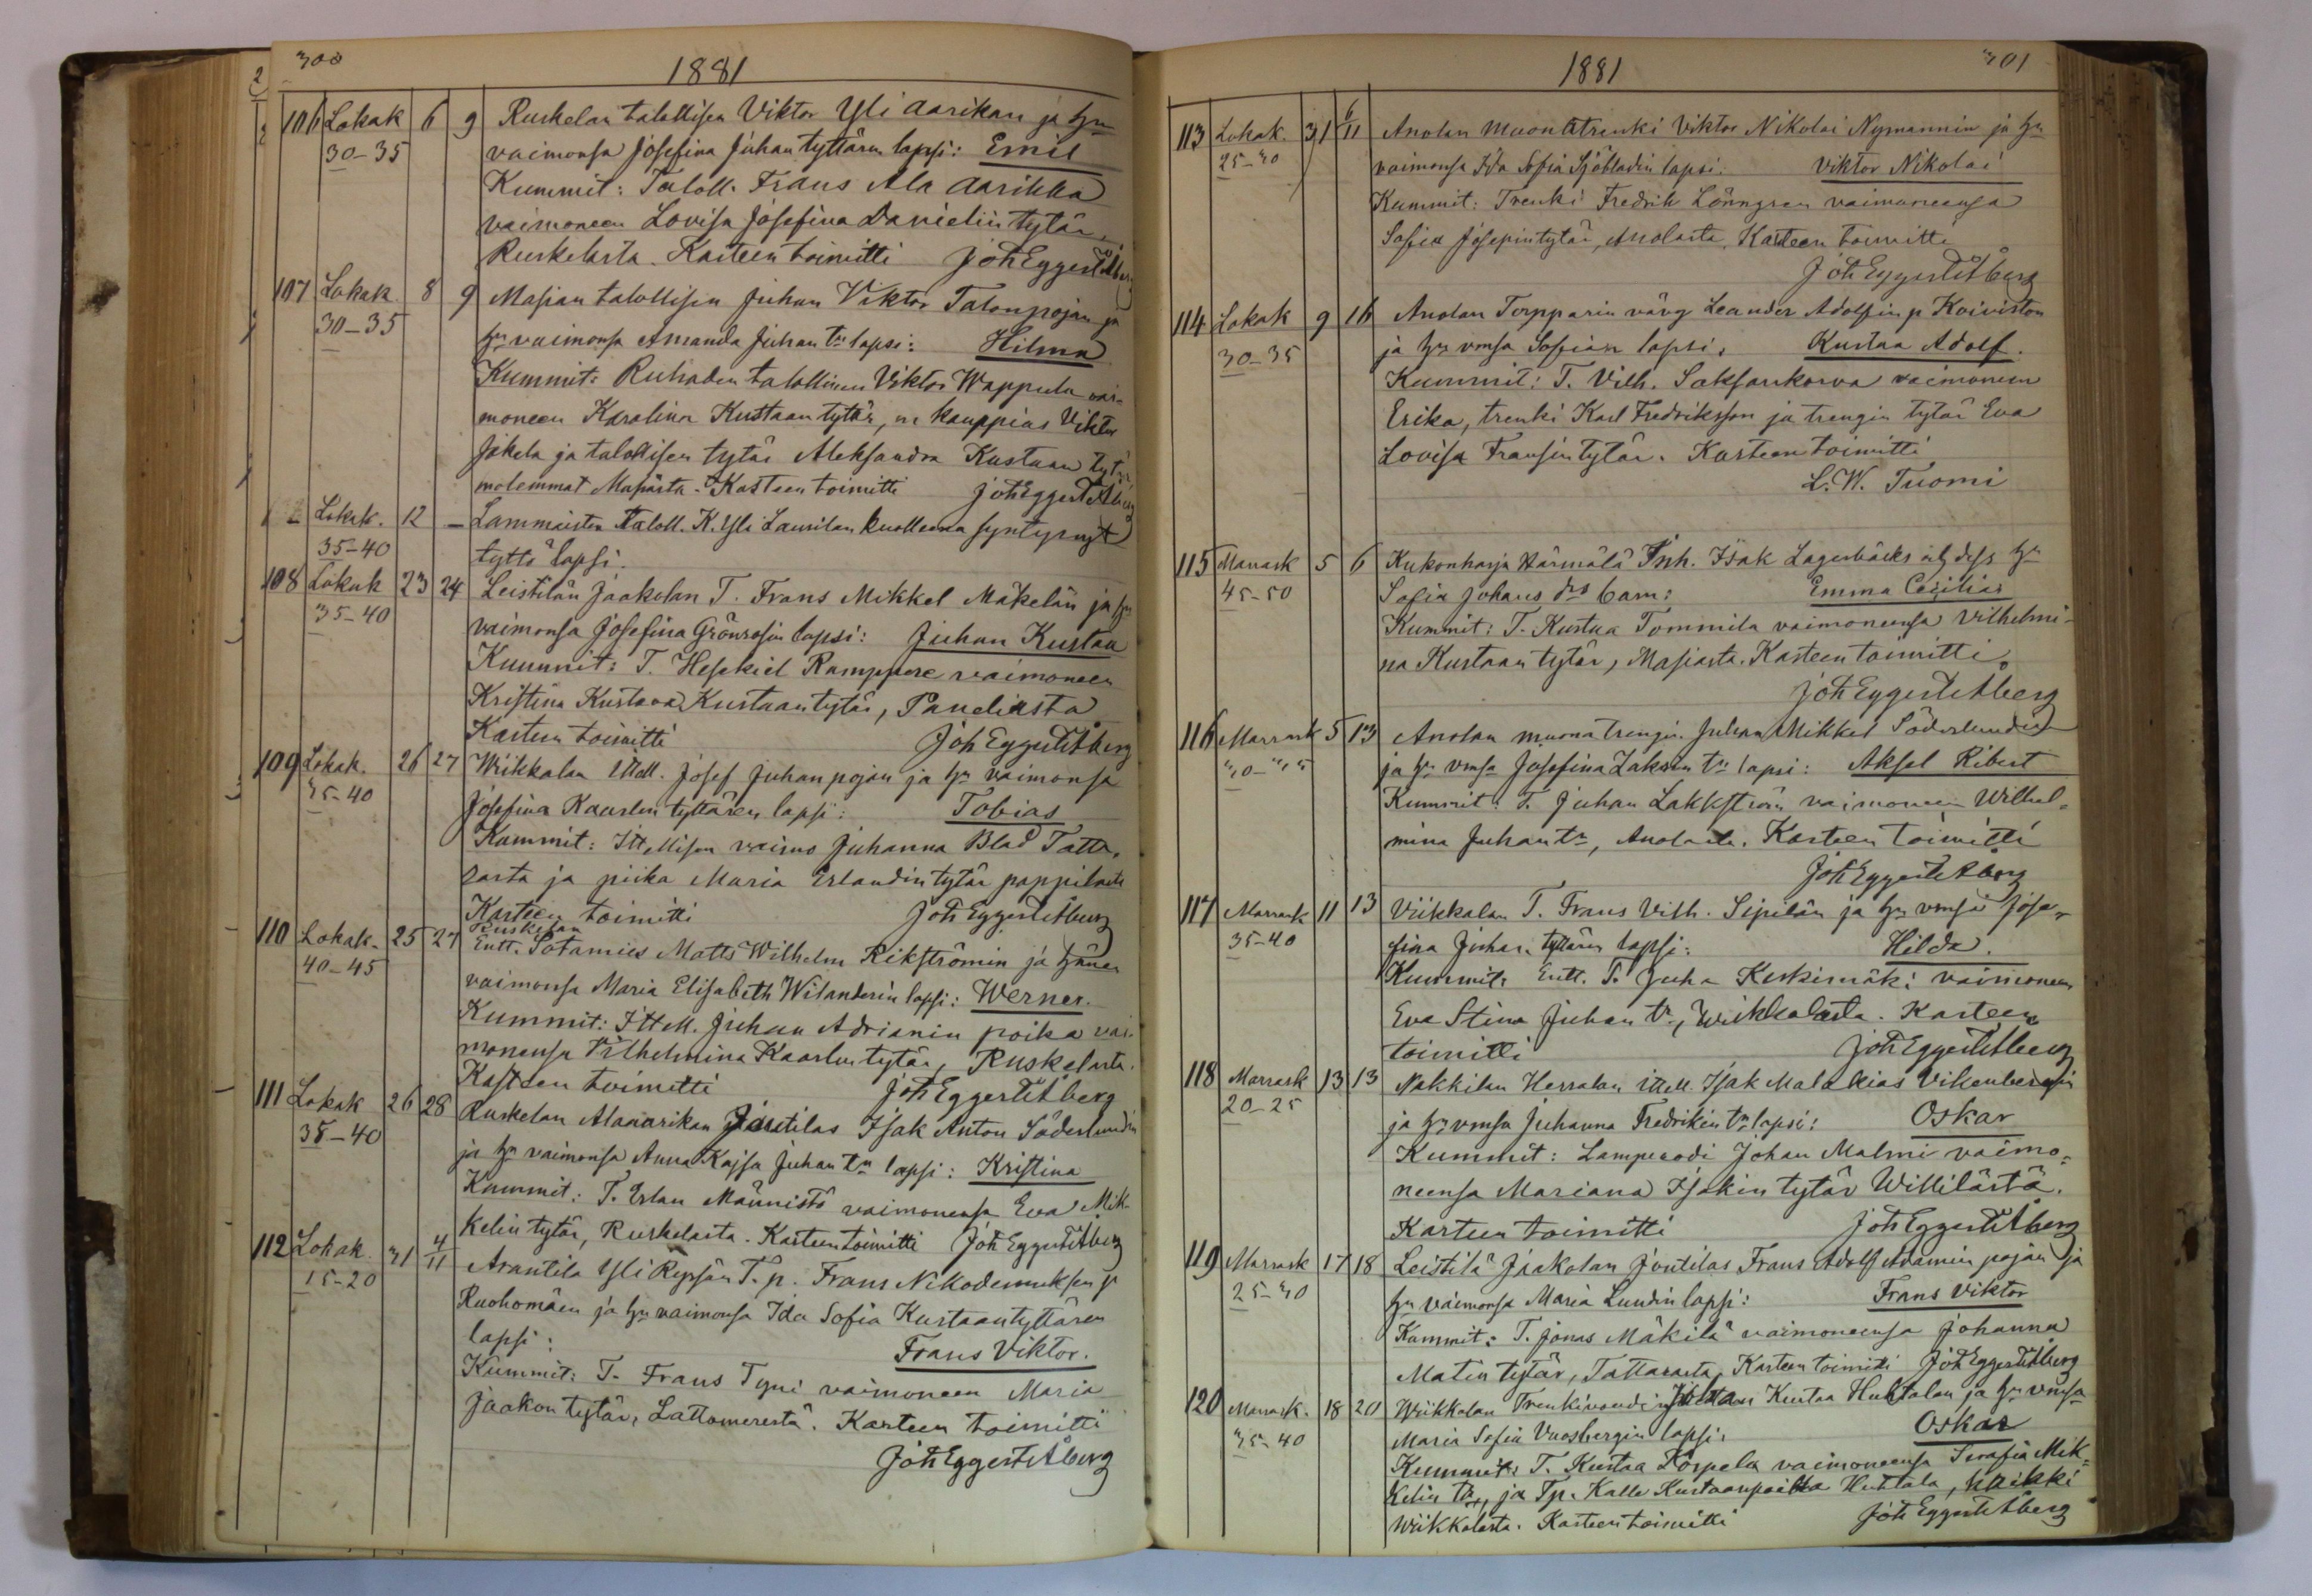 300
1881
106 Lokak 6 9 Ruskelan talollisen Viktor Yli Aarikan ja hn
30-35 vaimonsa Josefina Juhan tyttären lapsi: Emil
Kummit: Taloll. Frans Ala Aarikka
vaimoneen Lovisa Josefina Danielin tytär,
Ruskelasta. Kasteen toimitti Joh Eggert Åberg
107 Lokak. 8 9 Masian talollisen Juhan Viktor Talonpojan ja
30-35 hn vaimonsa Amanda Juhan tn lapsi: Hilma
Kummit: Ruhaden talollinen Viktor Wappula vai-
moneen Karolina Kustaan tytär, m kauppias Viktor
Jokela ja talollisen tytär Aleksandra Kustaan tytär
molemmat Masiasta. Kasteen toimitti Joh Eggert Åberg
Lokak. 12 - Lammaisten Taloll. K. Yli Laurilan kuolleena syntynyt
35-40 tyttö lapsi.
108 Lokak 23 24 Leistilän Jaakolan T. Frans Mikkel Mäkelän ja hn
35-40 vaimonsa Josefina Grönroosin lapsi: Juhan Kustaa
Kummit: T. Heskiel Ramppere vaimoneen
Kristina Kustava Kustaan tytär,
Kasteen toimitti Joh Eggert Åberg
109 Lokak. 26 27 Wiikkalan Ittell. Josef Juhan pojan ja hn vaimonsa
35-40 Josefina Kaarlen tyttären lapsi: Tobias
Kummit: Ittellisen vaimo Juhanna Blad Tatta-
rasta ja piika Maria Erlandin tytär pappilasta
Kasteen toimitti Joh Eggert Åberg
Ruskelan
110 Lokak. 25 27 Entt. Sotamies Matts Wilhelm Rikströmin ja hänen
40-45 vaimonsa Maria Elisabeth Wilanderin lapsi: Werner.
Kummit: Ittell. Juhan Adrianin poika vai-
monensa Vilhelmina Kaarlen tytär, Ruskelasta.
Kasteen toimitti Joh Eggert Åberg
111 Lokak 26 28 Ruskelan Alaaarikan Joutilas Isak Anton Söderlundin
35-40 ja hn vaimonsa Anna Kajsa Juhan tn lapsi: Kristina
Kummit: T. Erlan Männistö vaimoneensa Eva Mik-
kelin tytär, Ruskelasta. Kasteen toimitti Joh Eggert Åberg
112 Lokak. 31 4/11 Arantila Yli Repsän T.p. Frans Nikodemuksen p
15-20 Ruohomäen ja hn vaimonsa Ida Sofia Kustaantyttären
lapsi: Frans Viktor.
Kummit: T. Frans Tyni vaimoneen Maria
Jaakon tytär, Lattomerestä. Kasteen toimitti
Joh Eggert Åberg
301
1881
113 Lokak. 31 6/11 Anolan muonatrenki Viktor Nikolai Nymannin ja hn
25-30 vaimonsa Ida Sofia Sjöbladin lapsi: Viktor Nikolai
Kummit: Trenki Fredrik Lönngren vaimoneensa
Sofia Josepintytär, Anolasta, Kasteen toimitti
Joh Eggert Åberg
114 Lokak 9 16 Anolan Torpparin vävy Leander Adolfin p Koiviston
30-35 ja hn vmsa Sofian lapsi, Kustaa Adolf.
Kummit: T. Vilh. Saksankorva vaimoneen
Erika, trenki Karl Fredriksson ja trengin tytär Eva
Lovisa Fransin tytär. Kasteen toimitti
L. W. Tuomi
115 Marrask 5 6 Kukonharja Härmälä Inh. Isak Lagerbäcks och dess hn
45-50 Sofia Johans drs barn: Emma Cecilia
Kummit: T. Kustaa Tommila vaimoneensa Vilhelmi-
na Kustaan tytär, Masiasta. Kasteen toimitti
Joh Eggert Åberg
116 Marrask 5 13 Anolan muona trengin Juhan Mikkel Söderlundin
30-35 ja hn vmsa Josefina Isaksn tn lapsi: Aksel Ribert
Kummit: T. Juhan Lakström vaimoneen Wilhel-
mina Juhan tr, Anolasta. Kasteen toimitti
Joh Eggert Åberg
117 Marrask 11 13 Viikkalan T. Frans Vilh. Sipilän ja hn vmsa Jose-
35-40 fina Juhan tyttären lapsi: Hilda.
Kummit: Entt. T. Juha Keskimäki vaimoneen
Eva Stina Juhan tr, Wiikkalasta. Kasteen
toimitti Joh Eggert Åberg
118 Marrask 13 13 Nakkilan Herralan ittell. Isak Malakias Vikenbergin
20-25 ja hn vmsa Juhanna Fredrikin tn lapsi: Oskar
Kummit: Lampuodi Johan Malmi vaimo-
neensa Mariana Isakin tytär Willilästä.
Kasteen toimitti Joh Eggert Åberg
119 Marrask 17 18 Leistilä Jaakolan Joutilas Frans Adolf Adamin pojan ja
25-30 hn vaimonsa Maria Lundin lapsi: Frans Viktor
Kummit: T. Jonas Mäkilä vaimoneensa Johanna
Matin tytär, Tattarasta, Kasteen toimitti Joh Eggert Åberg
120 Marrask. 18 20 Wiikkalan Trenkivoudin Johan Kustaa Huhtalan ja hn vmsa
35-40 Maria Sofia Vuosbergin lapsi, Oskar
Kummit: T. Kustaa Torpela vaimoneensa Serafia Mik-
kelin tr, ja Tp. Kalle Kustaanpoika Huhtala, kaikki
Wiikkalasta. Kasteen toimitti Joh Eggert Åberg